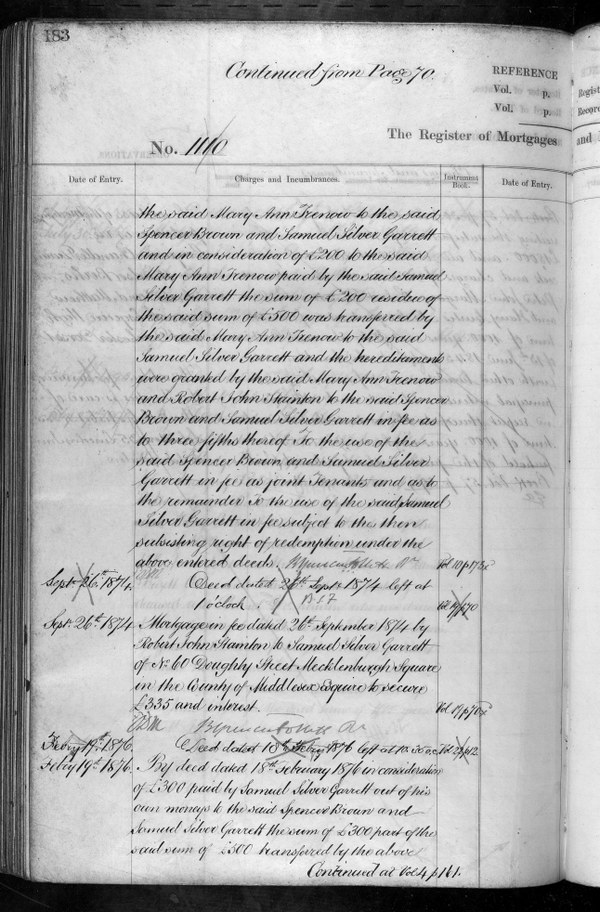 183
Continued from Page 70.
REFERENCE
Vol. p.
Vol. p.
The Register of Mortgages
No. 1110
Date of Entry.
Charges and Incumbrances.
Instrument Book.
Date of Entry.
the said Mary Ann Trenow to the said
Spencer Brown and Samuel Silver Garrett
and in consideration of £200 to the said
Mary Ann Trenow paid by the said Samuel
Silver Garrett the sum of £200 residue of
the said sum of £500 was transferred by
the said Mary Ann Trenow to the said
Samuel Silver Garrett and the hereditaments
were granted by the said Mary Ann Trenow
and Robert John Stainton to the said Spencer
Brown and Samuel Silver Garrett in fee as
to three fifths thereof To the use of the
said Spencer Brown and Samuel Silver
Garrett in fee as joint Tenants and as to
the remainder To the use of the said Samuel
Silver Garrett in fee subject to the then
subsisting right of redemption under the
above entered deeds. Vol 10 p 172
Septr. 26th 1874. Deed dated 26th Septr. 1874 left at
1 o'clock. Vol 19 p 70
Septr. 26th 1874 Mortgage in fee dated 26th September 1874 by
Robert John Stainton to Samuel Silver Garrett
of No. 60 Doughty Street Mecklenburgh Square
in the County of Middlesex Esquire to secure
£335 and interest. Vol 19 p 70
Febry 19th 1876. Deed dated 18th Febry 1876 left at 10.30 oc Vol 29 p 12
Febry 19th 1876. By deed dated 18th February 1876 in consideration
of £300 paid by Samuel Silver Garrett out of his
own moneys to the said Spencer Brown and
Samuel Silver Garrett the sum of £300 part of the
said sum of £500 transferred by the above
Continued at Vol 4 p 161.